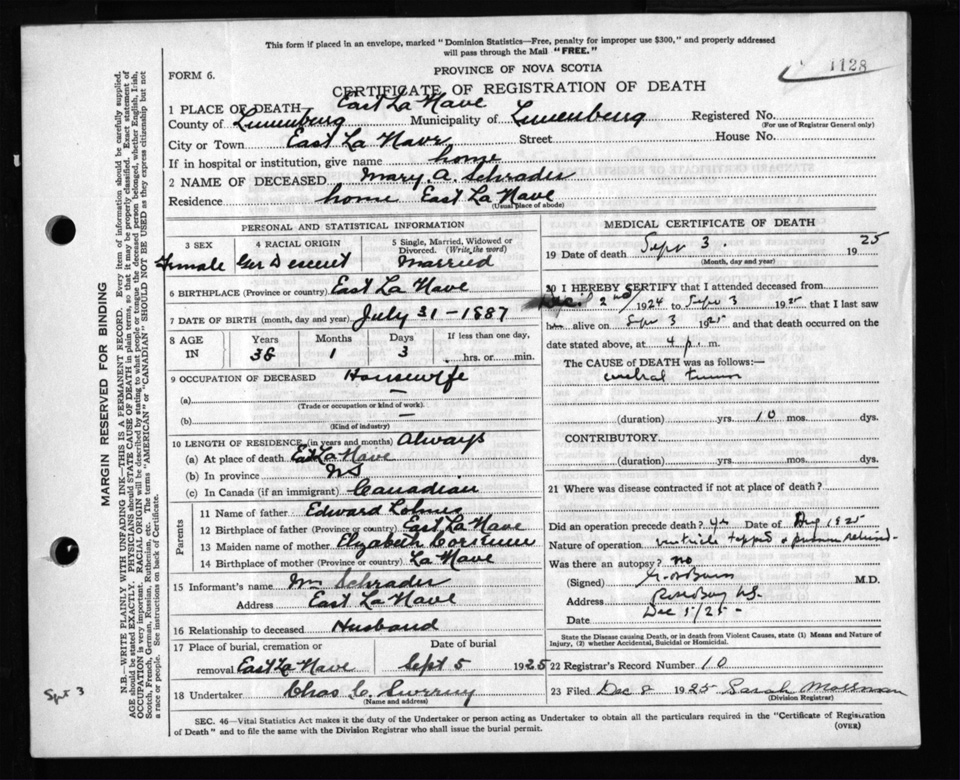 This form if placed in an envelope, marked "Dominion Statistics—Free, penalty for improper use $300," and properly addressed
will pass through the Mail "FREE."
1128
FORM 6.
PROVINCE OF NOVA SCOTIA
CERTIFICATE OF REGISTRATION OF DEATH
1 PLACE OF DEATH— East La Have
County of Lunenburg Municipality of Lunenburg Registered No.
(For use of Registrar General only)
City or Town East La Have Street House No.
If in hospital or institution, give name home
2 NAME OF DECEASED Mary. A. Schrader
Residence home East La Have
(Usual place of abode)
PERSONAL AND STATISTICAL INFORMATION
3 SEX 4 RACIAL ORIGIN 5 Single, Married, Widowed or Divorced. (Write the word)
Female Ger Descent Married
6 BIRTHPLACE (Province or country) East La Have
7 DATE OF BIRTH (month, day and year) July 31—1887
8 AGE IN Years Months Days If less than one day,
38 1 3 hrs. or min.
9 OCCUPATION OF DECEASED Housewife
(a) —
(Trade or occupation or kind of work)
(b) —
(Kind of industry)
10 LENGTH OF RESIDENCE (in years and months) Always
(a) At place of death East La Have
(b) In province NS
(c) In Canada (if an immigrant) Canadian
Parents
11 Name of father Edward Lohnes
12 Birthplace of father (Province or country) East La Have
13 Maiden name of mother Elyzabeth
14 Birthplace of mother (Province or country) La Have
15 Informant's name Wm Schrader
Address East La Have
16 Relationship to deceased Husband
17 Place of burial, cremation or Date of burial
removal East La Have Sept 5 1925
18 Undertaker Chas C.
(Name and address)
MEDICAL CERTIFICATE OF DEATH
19 Date of death Sept 3. 1925
(Month, day and year)
20 I HEREBY CERTIFY that I attended deceased from
2nd 1924 to Sept 3 1925, that I last saw
her alive on Sept 3 1925 and that death occurred on the
date stated above, at 4 p. m.
The CAUSE of DEATH was as follows:—
cerebral tumor
(duration) yrs. 10 mos. dys.
CONTRIBUTORY
(duration) yrs. mos. dys.
21 Where was disease contracted if not at place of death?
Did an operation precede death? yes Date of Aug 1925
Nature of operation ventricle tapped + pressure relieved
Was there an autopsy? no
(Signed) M.D.
Address Rose Bay NS.
Date Dec 5/25
State the Disease causing Death, or in death from Violent Causes, state (1) Means and Nature of
Injury, (2) whether Accidental, Suicidal or Homicidal.
22 Registrar's Record Number 10
23 Filed Dec 8 1925 Sarah Mossman
(Division Registrar)
SEC. 46—Vital Statistics Act makes it the duty of the Undertaker or person acting as Undertaker to obtain all the particulars required in the "Certificate of Registration
of Death" and to file the same with the Division Registrar who shall issue the burial permit.
(OVER)
MARGIN RESERVED FOR BINDING
N.B.—WRITE PLAINLY WITH UNFADING INK—THIS IS A PERMANENT RECORD. Every item of information should be carefully supplied.
AGE should be stated EXACTLY. PHYSICIANS should STATE CAUSE OF DEATH in plain terms, so that it may be properly classified. Exact statement of
OCCUPATION is very important. RACIAL ORIGIN will be described by stating to what people or tongue the deceased person belonged, whether English, Irish,
Scotch, French, German, Russian, Ruthenian, etc. The terms "AMERICAN" or "CANADIAN" SHOULD NOT BE USED as they express citizenship but not
a race or people. See instructions on back of Certificate.
Sept 3